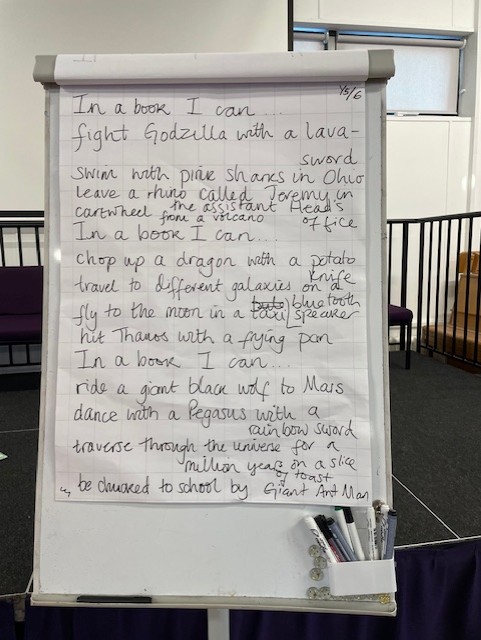 In a book I can...
Y5/6
fight Godzilla with a lava-
sword
swim with pink sharks in Ohio
leave a rhino called Jeremy in
the assistant Head's
office
cartwheel from a volcano
In a book I can...
chop up a dragon with a potato
knife
travel to different galaxies on a
bluetooth
speaker
fly to the moon in a taxi
hit Thanos with a frying pan
In a book I can...
ride a giant black wolf to Mars
dance with a Pegasus with a
rainbow sword
traverse through the universe for a
million years on a slice
of toast
be chucked to school by Giant Ant Man